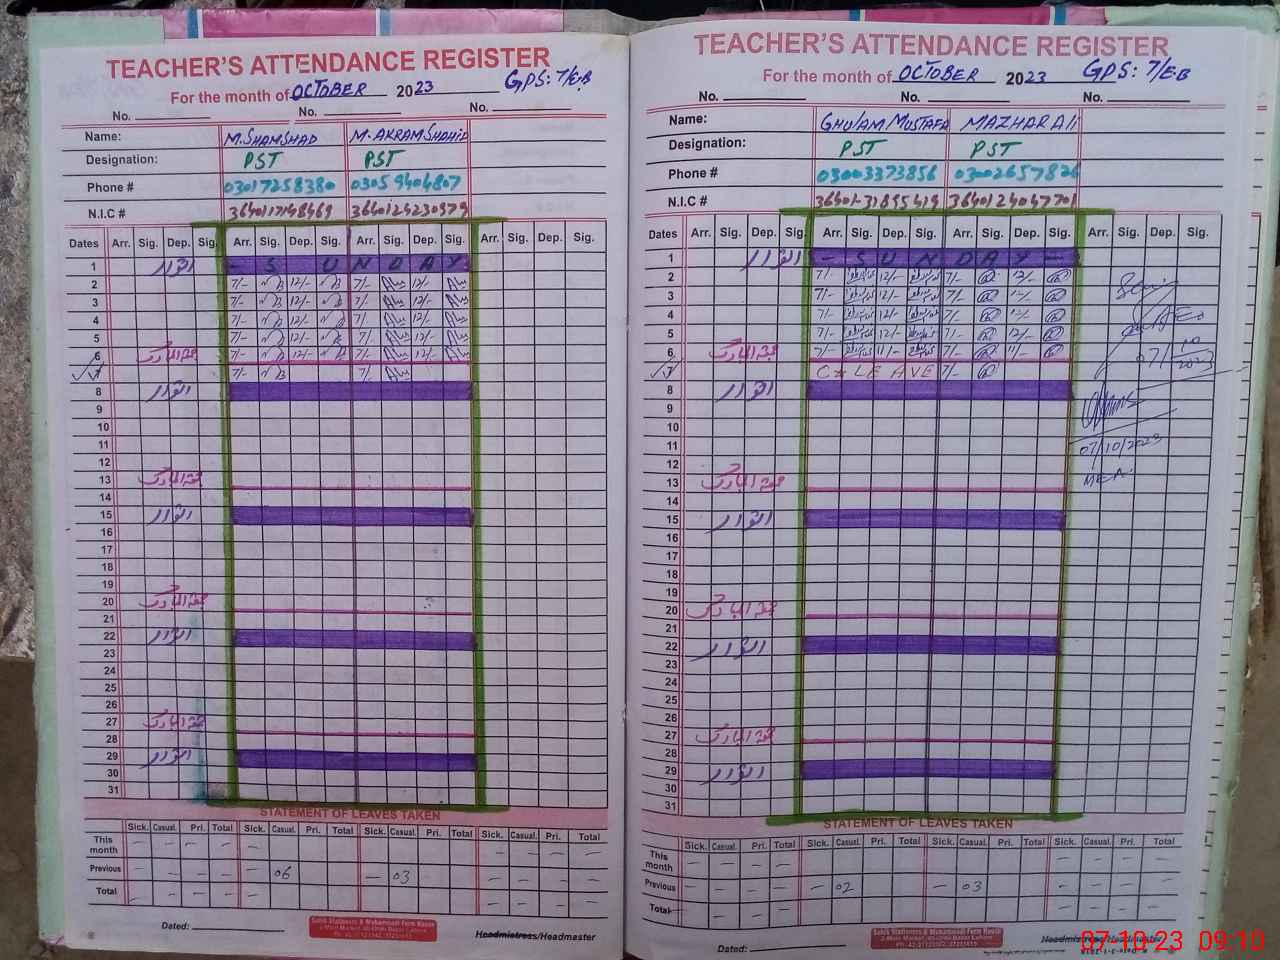 TEACHER'S ATTENDANCE REGISTER
For the month of OCTOBER 2023 GPS: 7/E.B
No. No. No.
Name: M. SHAMSHAD M. AKRAM SHAHID
Designation: PST PST
Phone # 03017258380 03059404807
N.I.C #
Dates Arr. Sig. Dep. Sig. Arr. Sig. Dep. Sig. Arr. Sig. Dep. Sig. Arr. Sig. Dep. Sig.
1 اتوار - S U N D A Y
2 7/- 12/- 7/- 12/-
3 7/- 12/- 7/- 12/-
4 7/- 12/- 7/- 12/-
5 7/- 12/- 7/- 12/-
6 جمعۃ المبارک 7/- 12/- 7/- 12/-
7 7/- 7/-
8 اتوار
9
10
11
12
13 جمعۃ المبارک
14
15 اتوار
16
17
18
19
20 جمعۃ المبارک
21
22 اتوار
23
24
25
26
27 جمعۃ المبارک
28
29 اتوار
30
31
STATEMENT OF LEAVES TAKEN
Sick. Casual. Pri. Total Sick. Casual. Pri. Total Sick. Casual. Pri. Total Sick. Casual. Pri. Total
This month
Previous 06 03
Total
Dated:
Headmistress/Headmaster
TEACHER'S ATTENDANCE REGISTER
For the month of OCTOBER 2023 GPS: 7/E.B
No. No. No.
Name: GHULAM MUSTAFA MAZHAR ALI
Designation: PST PST
Phone # 03003373856 03002657826
N.I.C #
Dates Arr. Sig. Dep. Sig. Arr. Sig. Dep. Sig. Arr. Sig. Dep. Sig. Arr. Sig. Dep. Sig.
1 اتوار - S U N D A Y -
2 7/- 12/- 7/- 12/-
3 7/- 12/- 7/- 12/-
4 7/- 12/- 7/- 12/-
5 7/- 12/- 7/- 12/-
6 جمعۃ المبارک 7/- 11/- 7/- 11/-
07/10/2023
7 LEAVE 7/-
8 اتوار
9
10
11
07/10/2023
12
13 جمعۃ المبارک
MEA
14
15 اتوار
16
17
18
19
20 جمعۃ المبارک
21
22 اتوار
23
24
25
26
27 جمعۃ المبارک
28
29 اتوار
30
31
STATEMENT OF LEAVES TAKEN
Sick. Casual. Pri. Total Sick. Casual. Pri. Total Sick. Casual. Pri. Total Sick. Casual. Pri. Total
This month
Previous 02 03
Total
Dated:
Headmistress/Headmaster
07.10.23 09:10